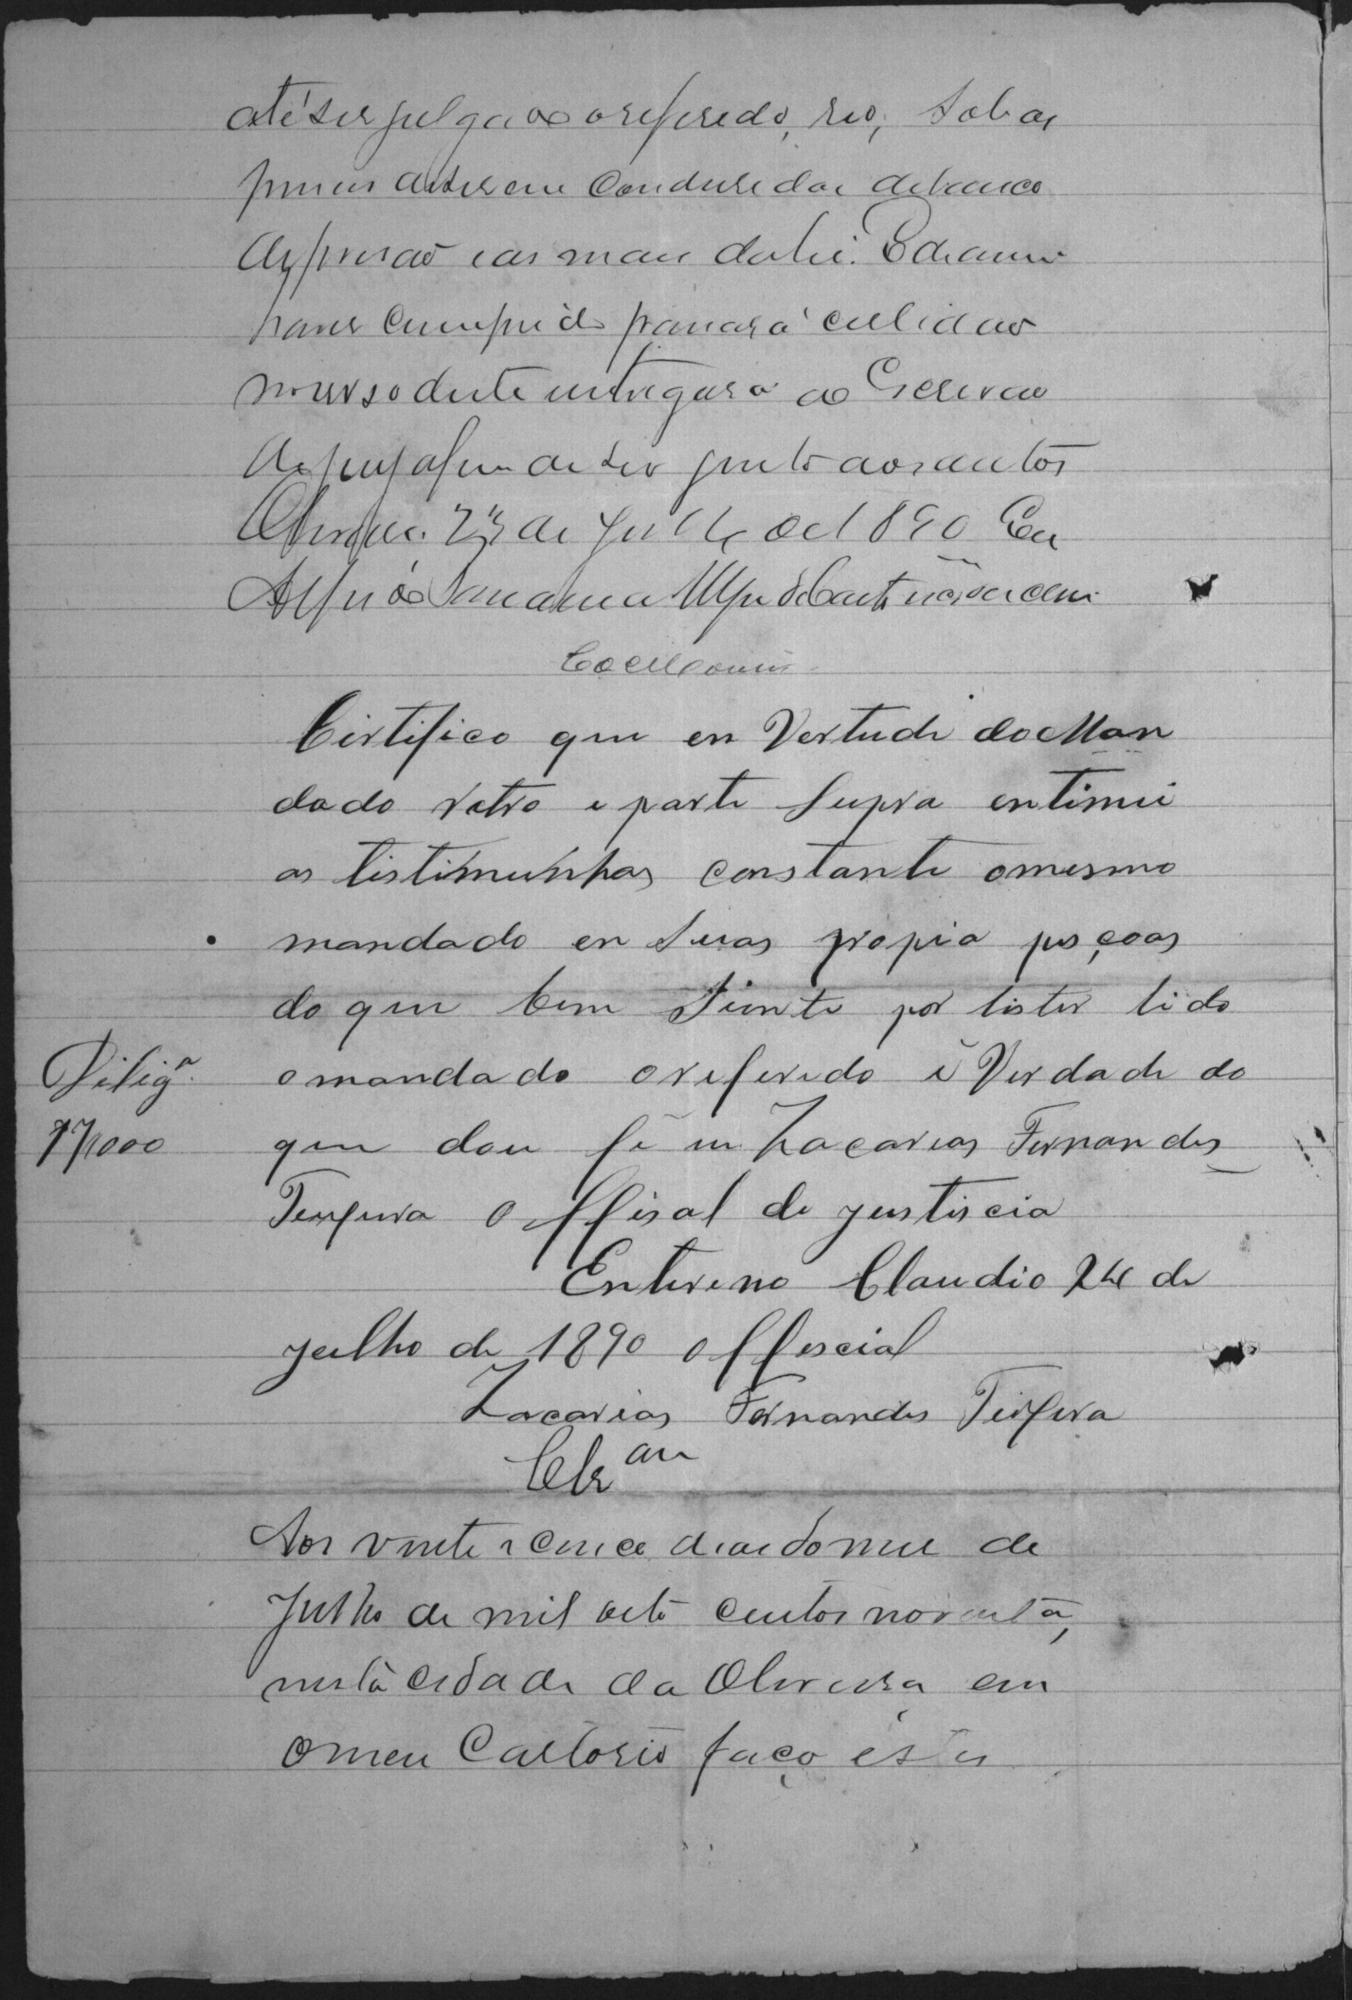 até ser julgado o referido, reo, sob as
penas de serem conduzidas debaixo
de prisão e as mais da lei. E de como
haver cumprido passará certidão
no verso deste entregará ao Escrivão
de paz afim de ser junto aos autos
Oliveira 23 de Julho de 1890 Eu
Certifico que en Vertude do Man
dado retro e parte Supra entimei
as tistimunhas constante o mesmo
mandado en Suas propia peçoas
do que bem Siente por lister lido
Diligª.
o mandado o referido é Verdade do
17000
que dou fé eu Zacarias Fernandes
Teixeira Offisal de justiscia
Entireno Claudio 24 de
julho de 1890 o ffescial
Zacarias Fernandes Teixera
Aos vinte e cinco dias do mez de
Julho de mil oito centos noventa,
nesta cidade da Oliveira em
o meu Cartorio faço estes